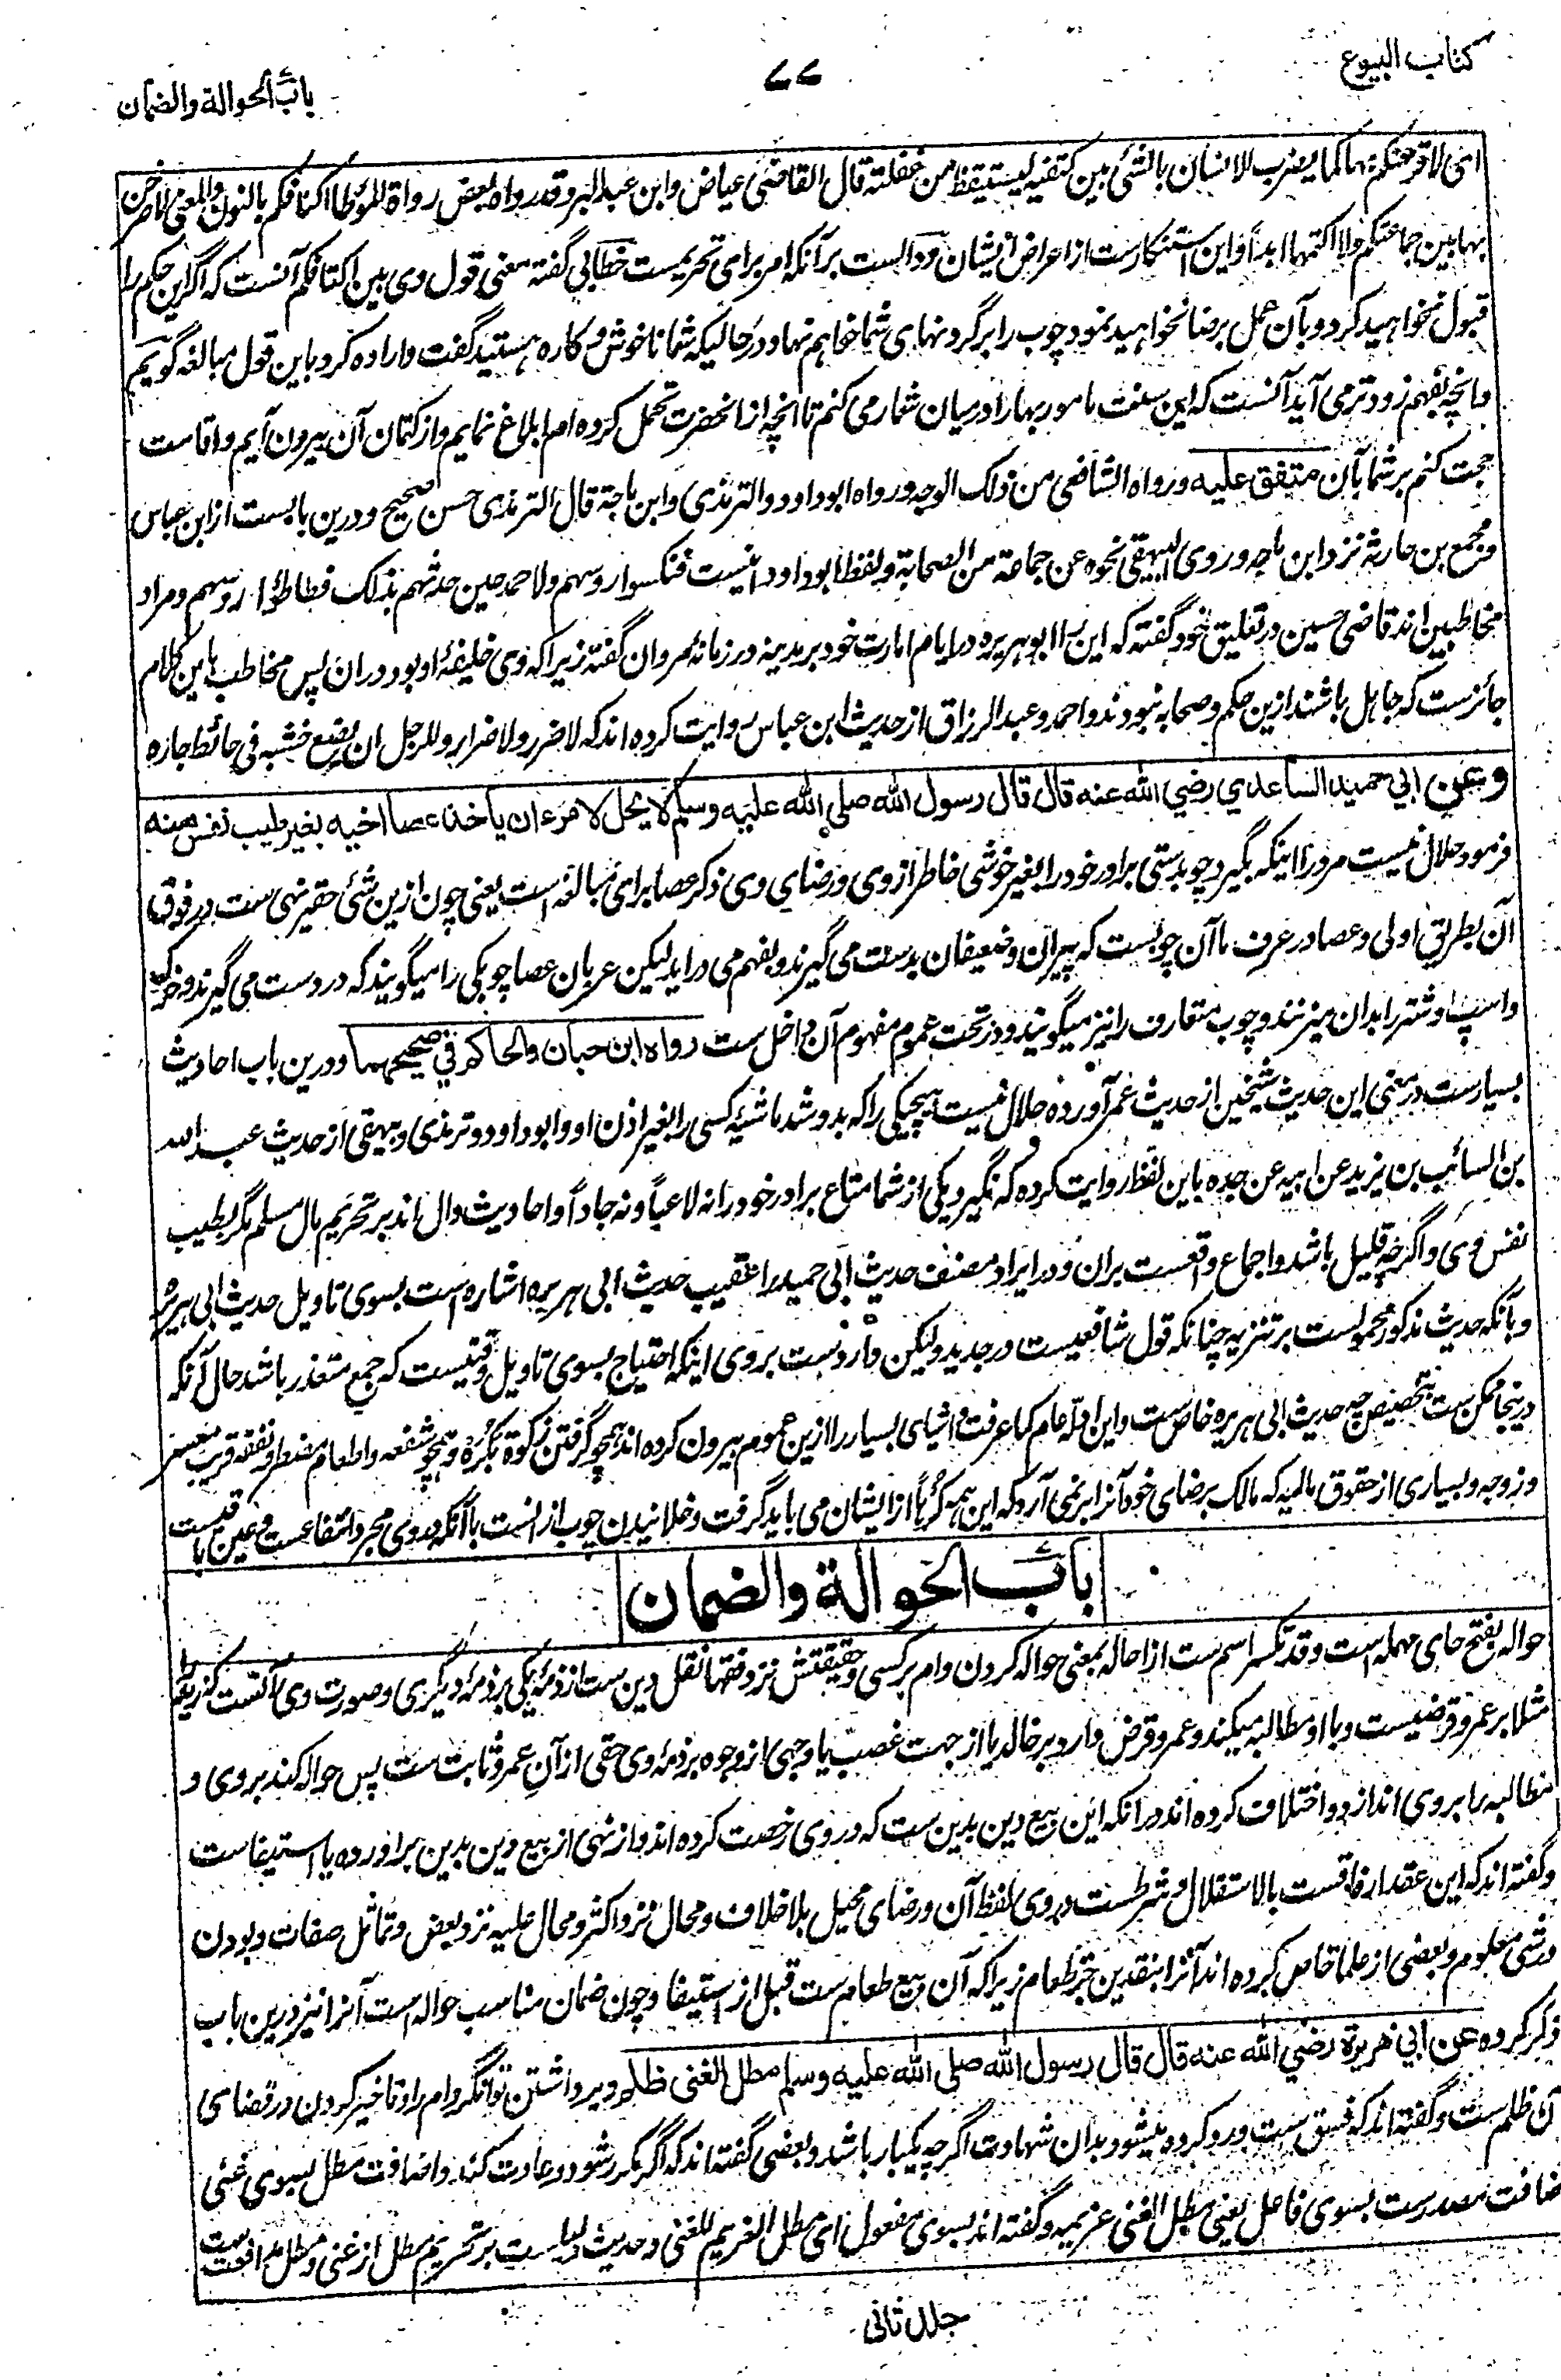 کتاب البیوع
۷۷
باب الحوالة والضمان
ای لاقرعنکم بها کما یضرب الانسان بالشئ بین کتفیه لیستیقظ من غفلته قال القاضی عیاض وابن عبدالبر وقد رواه بعض رواة الموطا اکنافکم بالنون والمعنی لاصرخن
بها بین جماعتکم ولا اکتمها ابداً واین استنکارست از اعراض ایشان ودالست برآنکه امر برای تحریمست خطابی گفته معنی قول وی بین اکتافکم آنست که اگر این حکم را
قبول نخواهید کرد و بآن عمل برضا نخواهید نمود چوب را برگردنهای شما خواهم نهاد در حالیکه شما ناخوش و کاره هستید گفت و اراده کرد باین قول مبالغه گویم
وانچه بفهم زودتر می آید آنست که این سنت مامور بها را درمیان شما رمی کنم تا انچه از انحضرت تحمل کرده ام ابلاغ نمایم واز کتمان آن بیرون آیم واقامت
حجت کنم برشما بآن متفق علیه ورواه الشافعی من ذلک الوجه ورواه ابوداود والترمذی وابن ماجة قال الترمذی حسن صحیح ودرین بابست از ابن عباس
ومجمع بن جاریه نزد ابن ماجه وروی البیهقی نحوه عن جماعة من الصحابة ولفظ ابوداود اینست فنکسوا روسهم ولاحمد حین حدثهم بذلک فطاطؤا روسهم ومراد
مخاطبین اند قاضی حسین در تعلیق خود گفته که این را ابوهریره در ایام امارت خود بر مدینه در زمانهٔ مروان گفته زیراکه وی خلیفهٔ او بود دران پس مخاطب باین کلام
جائزست که جاهل باشند ازین حکم وصحابه نبودند واحمد وعبدالرزاق از حدیث ابن عباس روایت کرده اند که لاضرر ولاضرار وللرجل ان یضع خشبه فی حائط جاره
وعن ابي حمید الساعدي رضي الله عنه قال قال رسول الله صلی الله علیه وسلم لا یحل لامرء ان یاخذ عصا اخیه بغیر طیب نفس منه
فرمود حلال نیست مرد را اینکه بگیرد چوبدستی برادر خود را بغیر خوشی خاطر از وی ورضای وی ذکر عصا برای مبالغه است یعنی چون ازین شئ حقیر نهی ست در فوق
آن بطریق اولی وعصا در عرف ما آن چوبست که پیران وضعیفان بدست می گیرند وبفهم می دراید لیکن عربان عصا چوبکی را میگویند که در دست می گیرند وخر
واسپ وشتر را بدان میزنند وچوب متعارف را نیز میگویند ودر تحت عموم مفهوم آن داخل ست رواه ابن حبان والحاکم في صحیحیهما ودرین باب احادیث
بسیارست در معنی این حدیث شیخین از حدیث عمر آورده حلال نیست هیچیکی را که بدوشد ماشیهٔ کسی را بغیر اذن او وابوداود وترمذی وبیهقی از حدیث عبدالله
بن السائب بن یزید عن ابیه عن جده باین لفظ روایت کرده که نگیرد یکی از شما متاع برادر خود را نه لاعباً ونه جاداً واحادیث دال اند بر تحریم مال مسلم مگر بطیب
نفس وی واگرچه قلیل باشد واجماع واقعست بران ودر ایراد مصنف حدیث ابی حمید را عقیب حدیث ابی هریره اشاره است بسوی تاویل حدیث ابی هریره
وبآنکه حدیث مذکور محمولست بر تنزیه چنانکه قول شافعیست در جدید ولیکن واردست بروی اینکه احتیاج بسوی تاویل وقتیست که جمع متعذر باشد حال آنکه
درینجا ممکن ست بتخصیص چه حدیث ابی هریره خاص ست واین ادله عام کما عرفت واشیای بسیار را ازین عموم بیرون کرده اند همچو گرفتن زکوة بکره وهمچو شفعه واطعام مضطر ونفقه قریب معسر
وزوجه وبسیاری از حقوق مالیه که مالک برضای خود آنرا برنمی آرد که این همه کرهاً از ایشان می باید گرفت وخلانیدن چوب ازانست باآنکه در وی مجرد انتفاعست وعین باقیست
باب الحوالة والضمان
حواله بفتح حای مهمله است وقد تکسر اسم ست از احاله بمعنی حواله کردن وام برکسی وحقیقتش نزد فقها نقل دین ست از ذمهٔ یکی بر ذمهٔ دیگری وصورت وی آنست که زید را
مثلا بر عمرو قرضیست وبا او مطالبه میکند وعمرو قرض دارد بر خالد یا از جهت غصب یا وجهی از وجوه بر ذمهٔ وی حقی از آن عمرو ثابت ست پس حواله کند بروی و
مطالبه را بروی اندازد واختلاف کرده اند درانکه این بیع دین بدین ست که در وی رخصت کرده اند واز نهی از بیع دین بدین براورده یا استیفاست
وگفته اند که این عقد ارفاقست بالاستقلال وشرطست در وی لفظ آن ورضای محیل بلاخلاف ومحال نزد اکثر ومحال علیه نزد بعض وتماثل صفات وبودن
در شئ معلوم وبعضی از علما خاص کرده اند آنرا بنقدین جز طعام زیراکه آن بیع طعام ست قبل از استیفا وچون ضمان مناسب حواله است آنرا نیز درین باب
ذکر کرده عن ابي هریرة رضي الله عنه قال قال رسول الله صلی الله علیه وسلم مطل الغنی ظلم ویرواشتن توانگر وام را وتاخیر کردن در قضای
آن ظلم ست وگفته اند که فسق ست ورد کرده میشود بدان شهادت اگرچه یکبار باشد وبعضی گفته اند که اگر مکرر شود وعادت کند واضافت مطل بسوی غنی
ضافت مصدرست بسوی فاعل یعنی مطل الغنی غریمه وگفته اند بسوی مفعول ای مطل الغریم للغنی وحدیث دلیلست بر تحریم مطل از غنی ومطل مدافعت
جلد ثانی